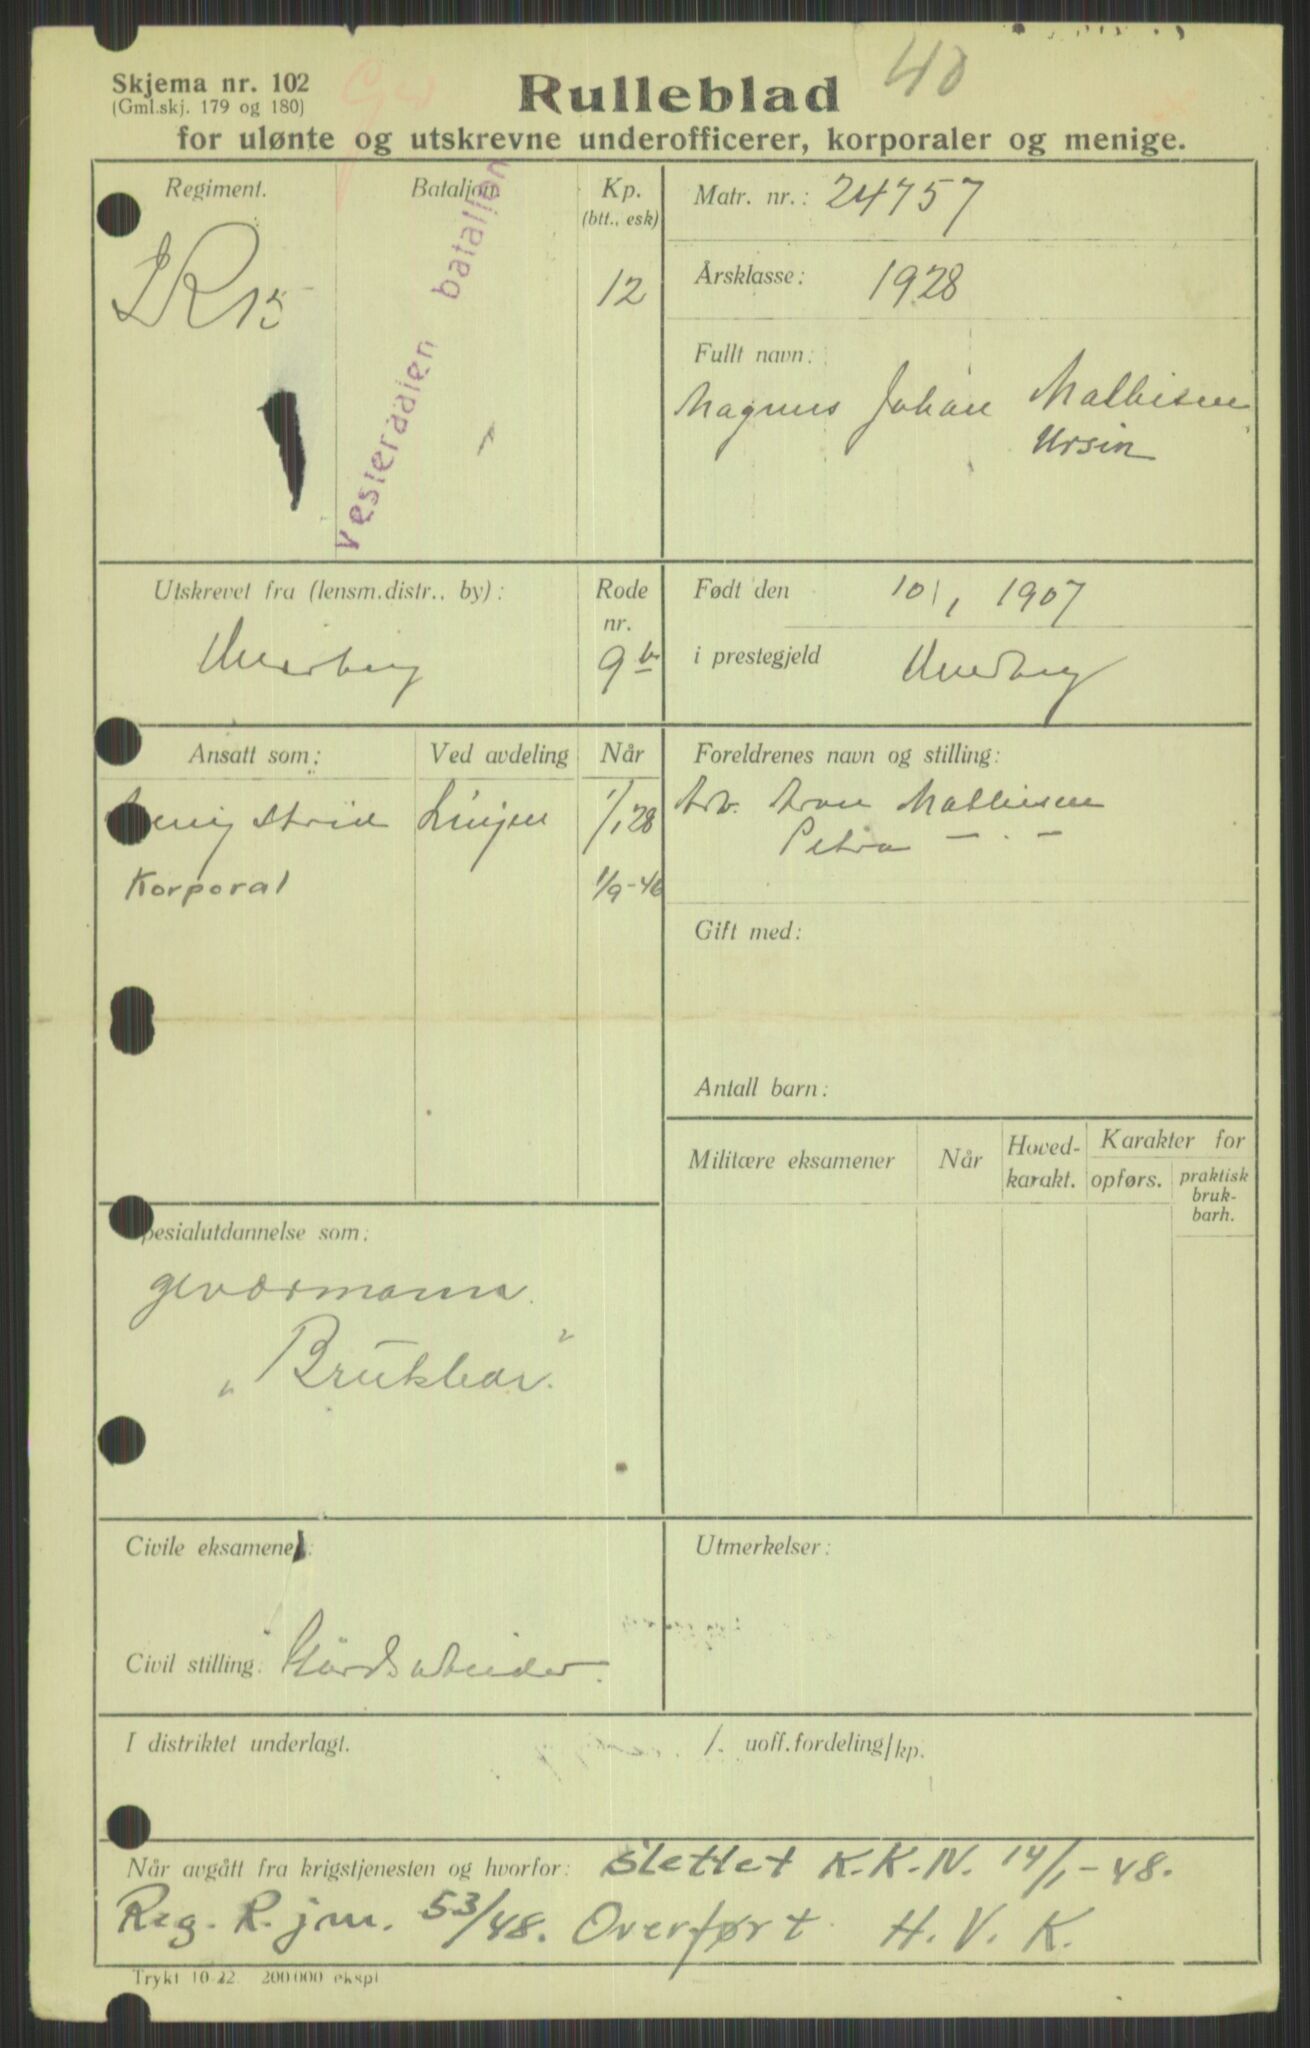 40
Skjema nr. 102
(Gml.skj. 179 og 180)
Rulleblad
for ulønte og utskrevne underofficerer, korporaler og menige.
Regiment.
Bataljon.
Kp.
(btt., esk)
IR 15
Vesteraalen bataljon
12
Matr. nr.: 24757
Årsklasse: 1928
Fullt navn:
Magnus Johan Mathisen
Ursin
Utskrevet fra (lensm.distr., by):
Rode
nr.
9 b
Født den 10/1 1907
i prestegjeld
Ansatt som:
Ved avdeling
Når
Menig strid Linjen 1/1 28
Korporal 1/9-46
Foreldrenes navn og stilling:
Arb. Aron Mathisen
Petra — . —
Gift med:
Antall barn:
Militære eksamener
Når
Hoved-
karakt.
Karakter for
opførs.
praktisk
bruk-
barh.
Spesialutdannelse som:
geværmann.
"Brukbar."
Civile eksamener:
Civil stilling: Gårdsarbeider.
Utmerkelser:
I distriktet underlagt.
/. uoff.fordeling/kp.
Når avgått fra krigstjenesten og hvorfor: slettet K.K.N. 14/1-48.
Reg. R.jm. 53/48. Overført H.V.K.
Trykt 10 22 200.000 ekspl